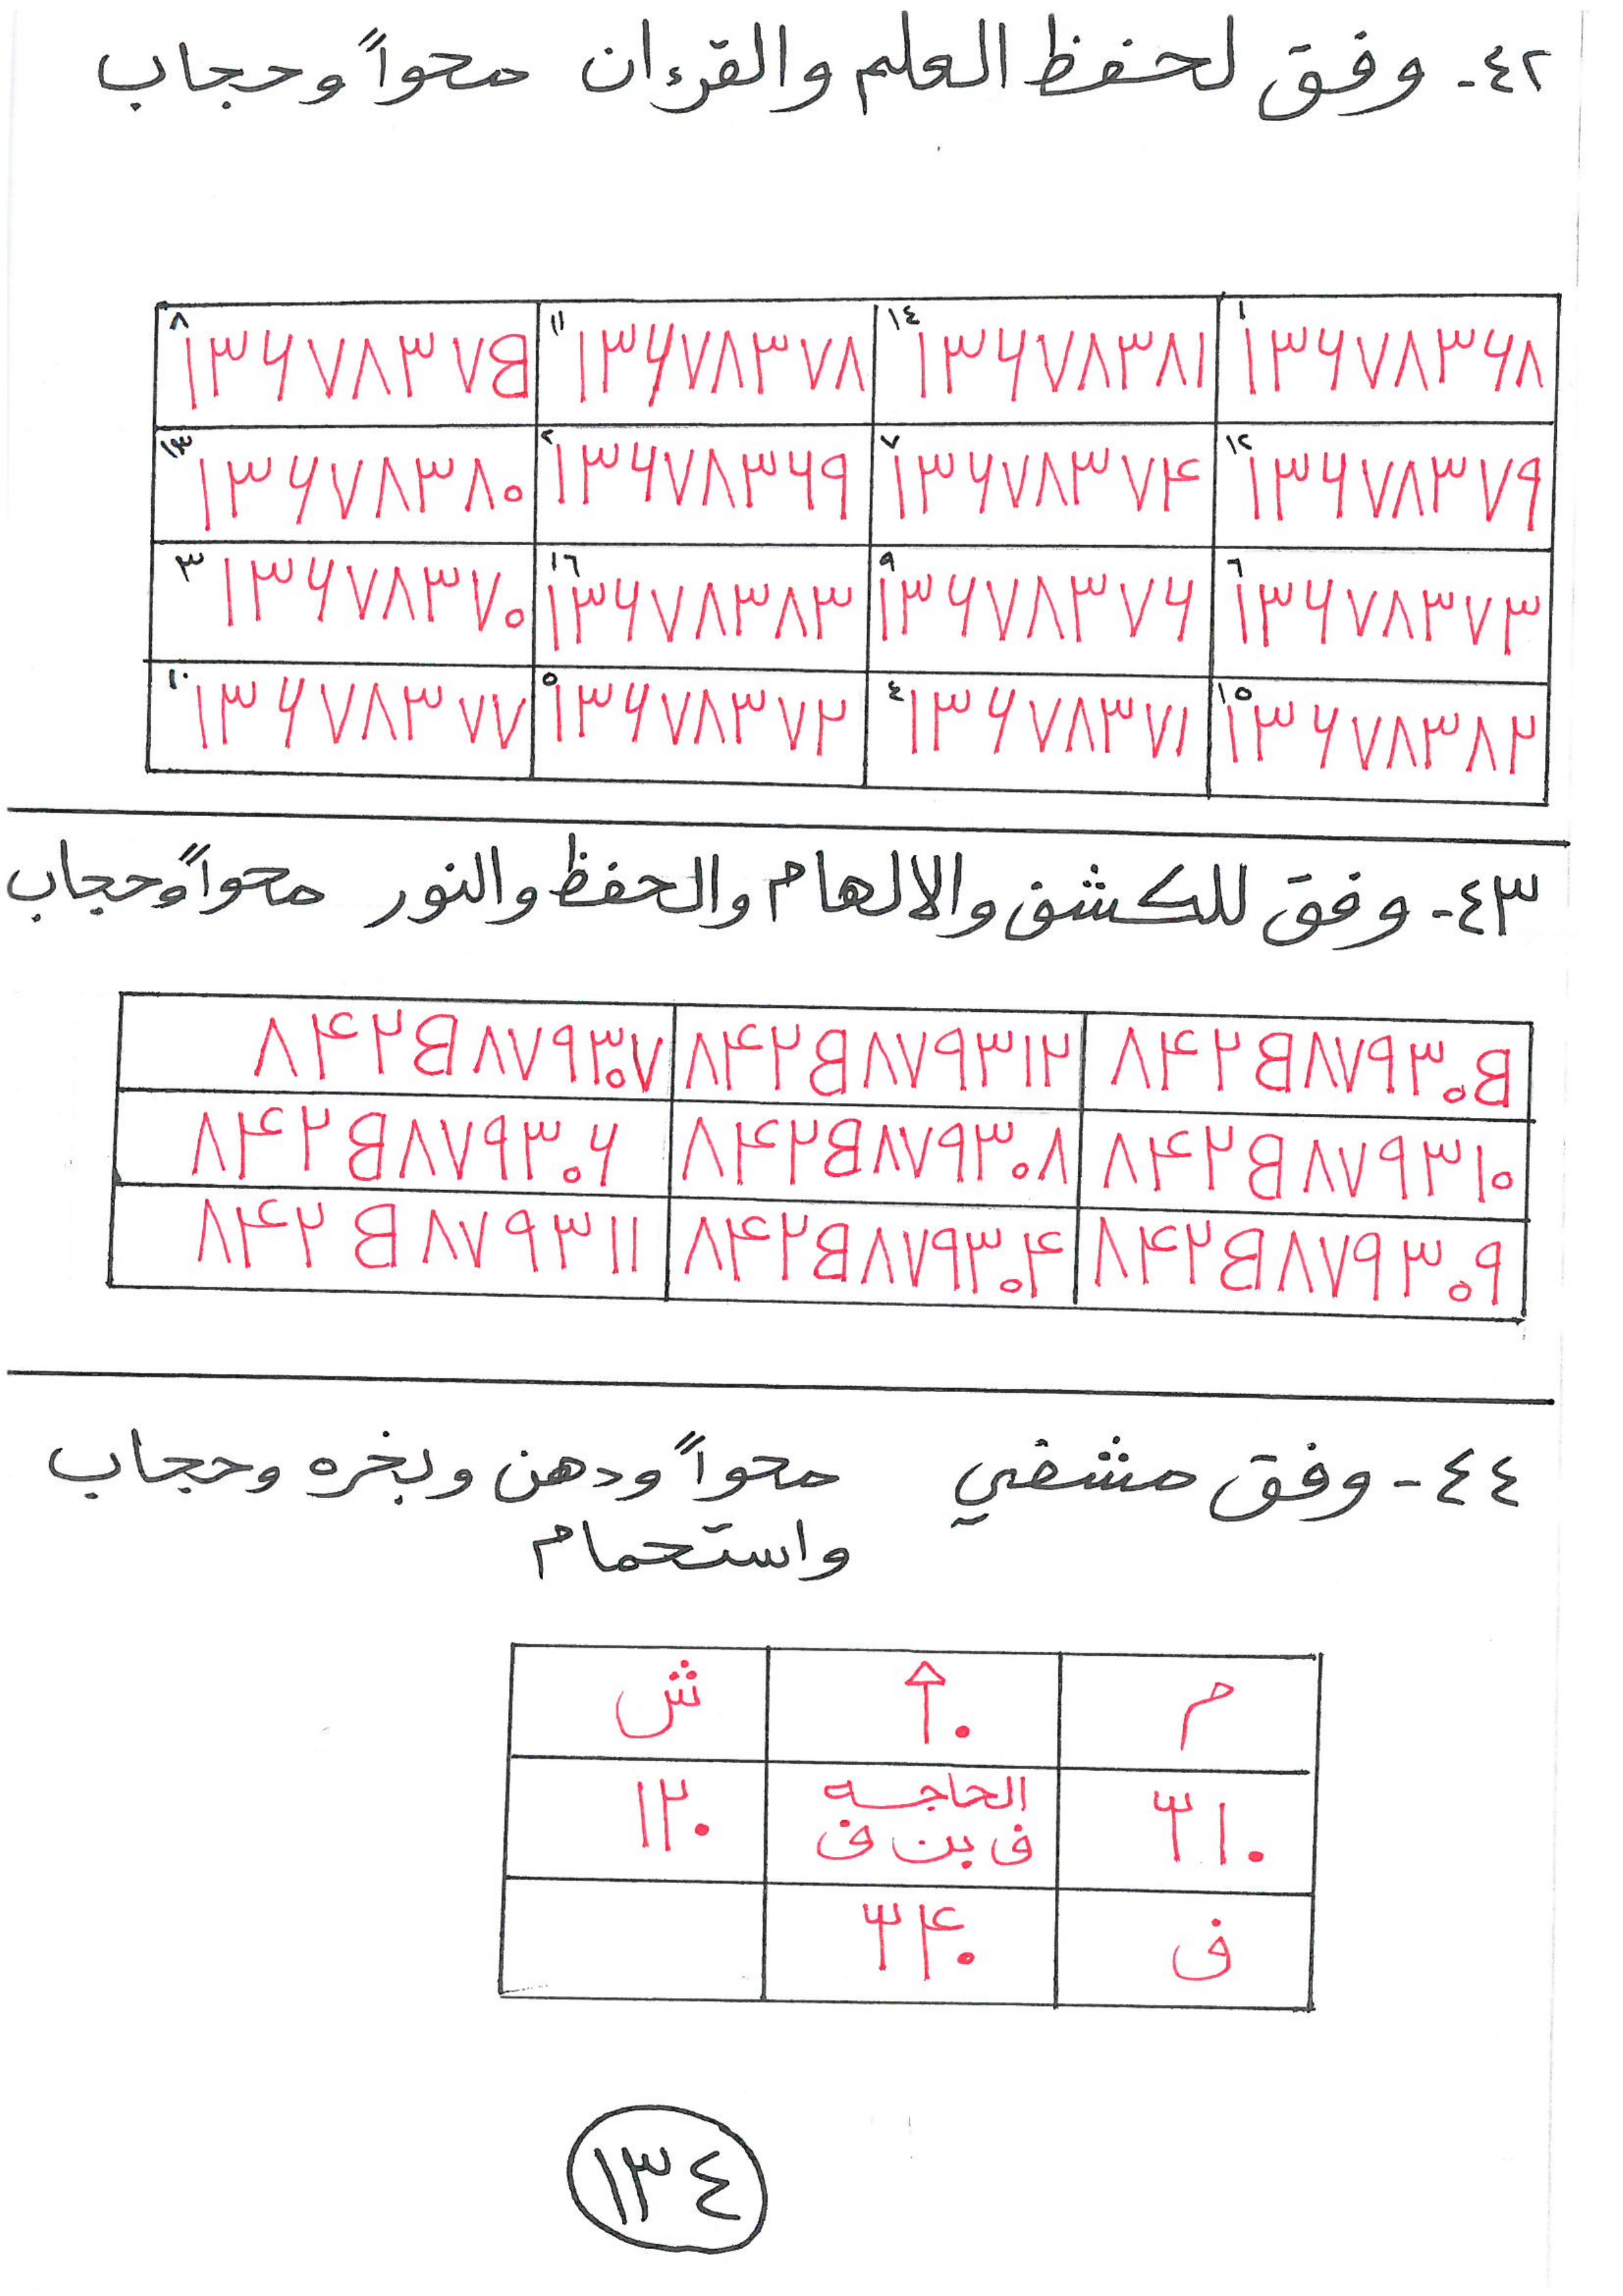 ٤٢- وفق لحفظ العلم والقرءان محواً وحجاب
١ ١٣٦٧٨٣٦٨ ١٤ ١٣٦٧٨٣٨١ ١١ ١٣٦٧٨٣٧٨ ٨ ١٣٦٧٨٣٧B
١٢ ١٣٦٧٨٣٧٩ ٧ ١٣٦٧٨٣٧۴ ٢ ١٣٦٧٨٣٦٩ ١٣ ١٣٦٧٨٣٨٠
٦ ١٣٦٧٨٣٧٣ ٩ ١٣٦٧٨٣٧٦ ١٦ ١٣٦٧٨٣٨٣ ٣ ١٣٦٧٨٣٧٠
١٥ ١٣٦٧٨٣٨٢ ٤ ١٣٦٧٨٣٧١ ٥ ١٣٦٧٨٣٧٢ ١٠ ١٣٦٧٨٣٧٧
٤٣- وفق للكشف والالهام والحفظ والنور محواً وحجاب
٨۴٢B٨٧٩٣٠B ٨۴٢B٨٧٩٣١٢ ٨۴٢B٨٧٩٣٠٧
٨۴٢B٨٧٩٣١٠ ٨۴٢B٨٧٩٣٠٨ ٨۴٢B٨٧٩٣٠٦
٨۴٢B٨٧٩٣٠٩ ٨۴٢B٨٧٩٣٠۴ ٨۴٢B٨٧٩٣١١
٤٤- وفق مشفي محواً ودهن وبخره وحجاب
واستحمام
م ش
٣١٠ الحاجه ١٢٠
ف بن ف
ف ٣۴٠
١٣٤